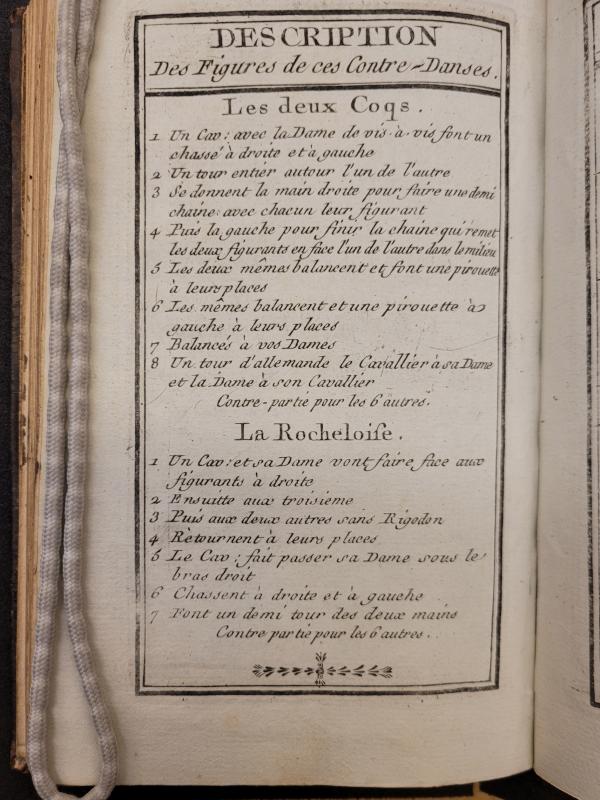 DESCRIPTION
Des Figures de ces Contre-Danses.
Les deux Coqs.
1 Un Cav: avec la Dame de vis-à-vis font un
chassé à droite et à gauche
2 Un tour entier autour l'un de l'autre
3 Se donnent la main droite pour faire une demi
chaine avec chacun leur figurant
4 Puis la gauche pour finir la chaine qui remet
les deux figurants en face l'un de l'autre dans le milieu
5 Les deux mêmes balancent et font une pirouette
à leurs places
6 Les mêmes balancent et une pirouette à
gauche à leurs places
7 Balancés à vos Dames
8 Un tour d'allemande le Cavallier à sa Dame
et la Dame à son Cavallier
Contre-partie pour les 6 autres.
La Rocheloise.
1 Un Cav: et sa Dame vont faire face aux
figurants à droite
2 Ensuitte aux troisieme
3 Puis aux deux autres sans Rigodon
4 Rètournent à leurs places
5 Le Cav: fait passer sa Dame sous le
bras droit
6 Chassent à droite et à gauche
7 Font un demi tour des deux mains
Contre partie pour les 6 autres.